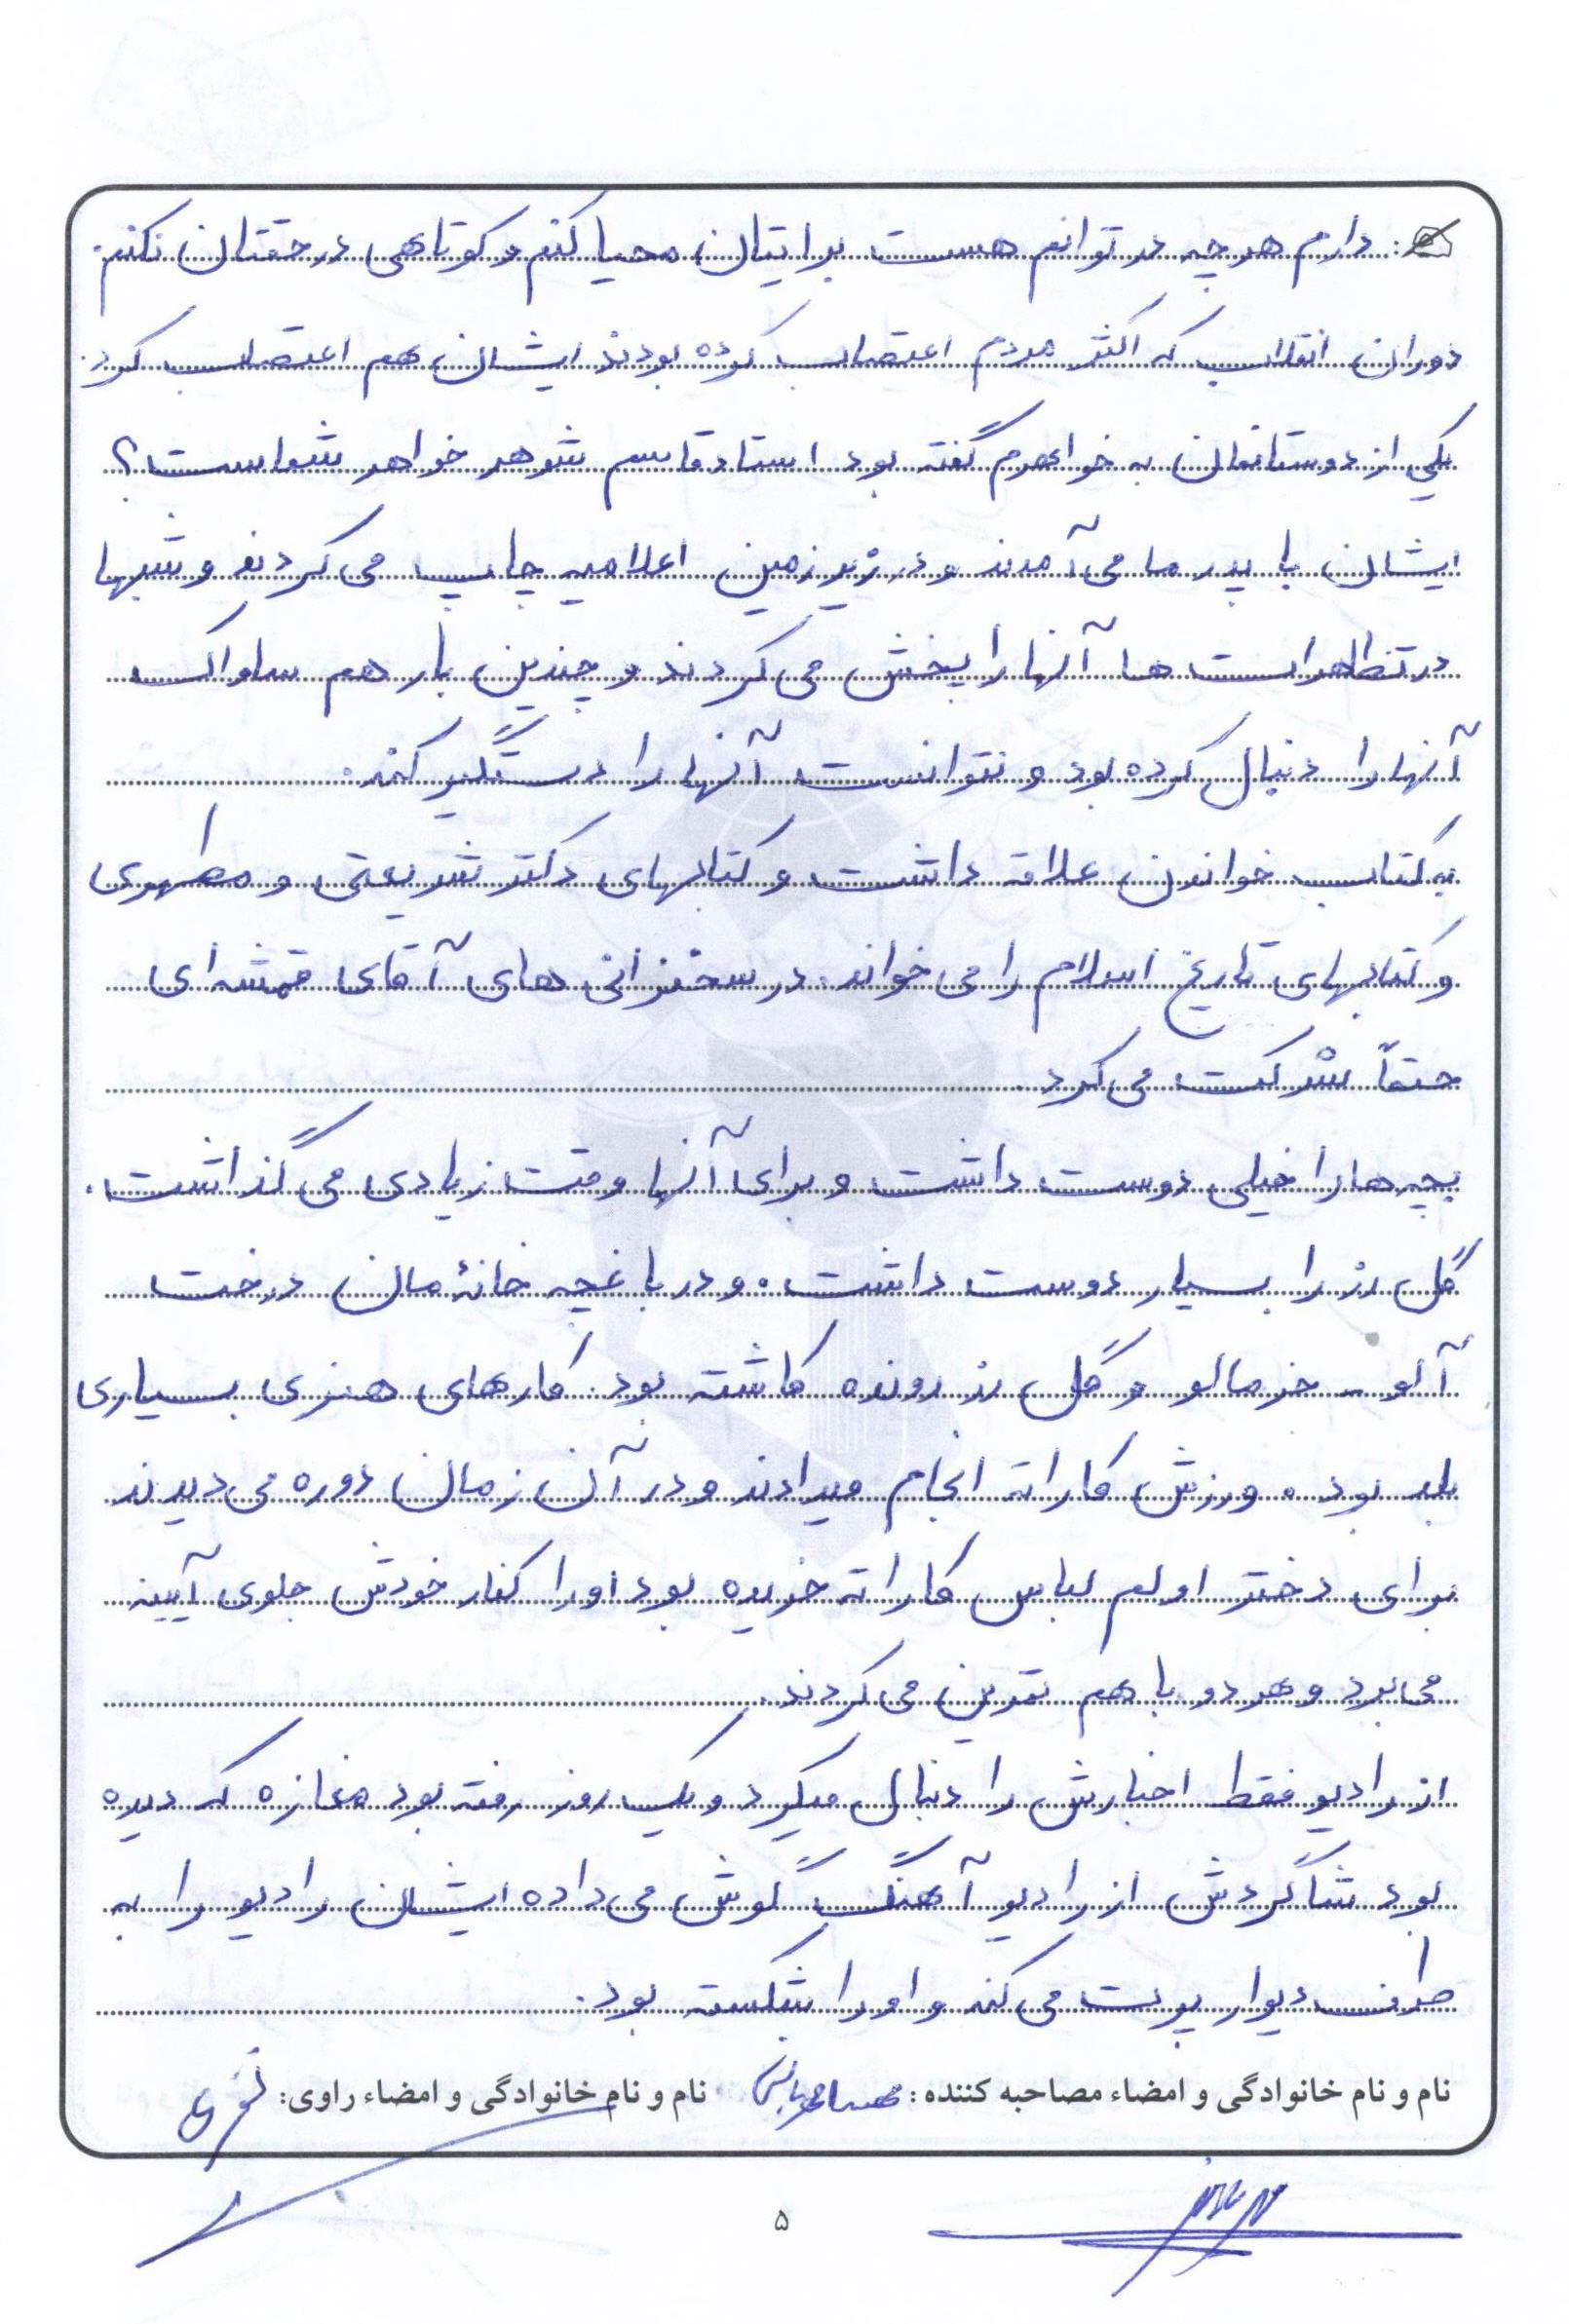 دارم هرچه در توانم هست برایتان محیا کنم و کوتاهی در حقتان نکنم.
دوران انقلاب که اکثر مردم اعتصاب کرده بودند ایشان هم اعتصاب کرد.
یکی از دوستانمان به خواهرم گفته بود استاد قاسم شوهر خواهر شماست؟
ایشان با پدر ما می‌آمدند و در زیرزمین اعلامیه چاپ می‌کردند و شبها
در تظاهرات ها آنها را پخش می‌کردند و چندین بار هم ساواک
آنها را دنبال کرده بود و نتوانست آنها را دستگیر کند.
به کتاب خواندن علاقه داشت و کتابهای دکتر شریعتی و مطهری
و کتابهای تاریخ اسلام را می‌خواند. در سخنرانی های آقای قمشه‌ای
حتماً شرکت می‌کرد.
بچه‌ها را خیلی دوست داشت و برای آنها وقت زیادی می‌گذاشت.
گل رز را بسیار دوست داشت. و در باغچه خانهٔ مان درخت
آلو - خرمالو و گل رز رونده کاشته بود. کارهای هنری بسیاری
بلد بود. ورزش کاراته انجام میدادند و در آن زمان دوره می‌دیدند
برای دختر اولم لباس کاراته خریده بود او را کنار خودش جلوی آیینه
می‌برد و هر دو با هم تمرین می‌کردند.
از رادیو فقط اخبارش را دنبال میکرد و یک روز رفته بود مغازه که دیده
بود شاگردش از رادیو آهنگ گوش می‌داده ایشان رادیو را به
طرف دیوار پرت می‌کند و او را شکسته بود.
نام و نام خانوادگی و امضاء مصاحبه کننده: نام و نام خانوادگی و امضاء راوی:
۵